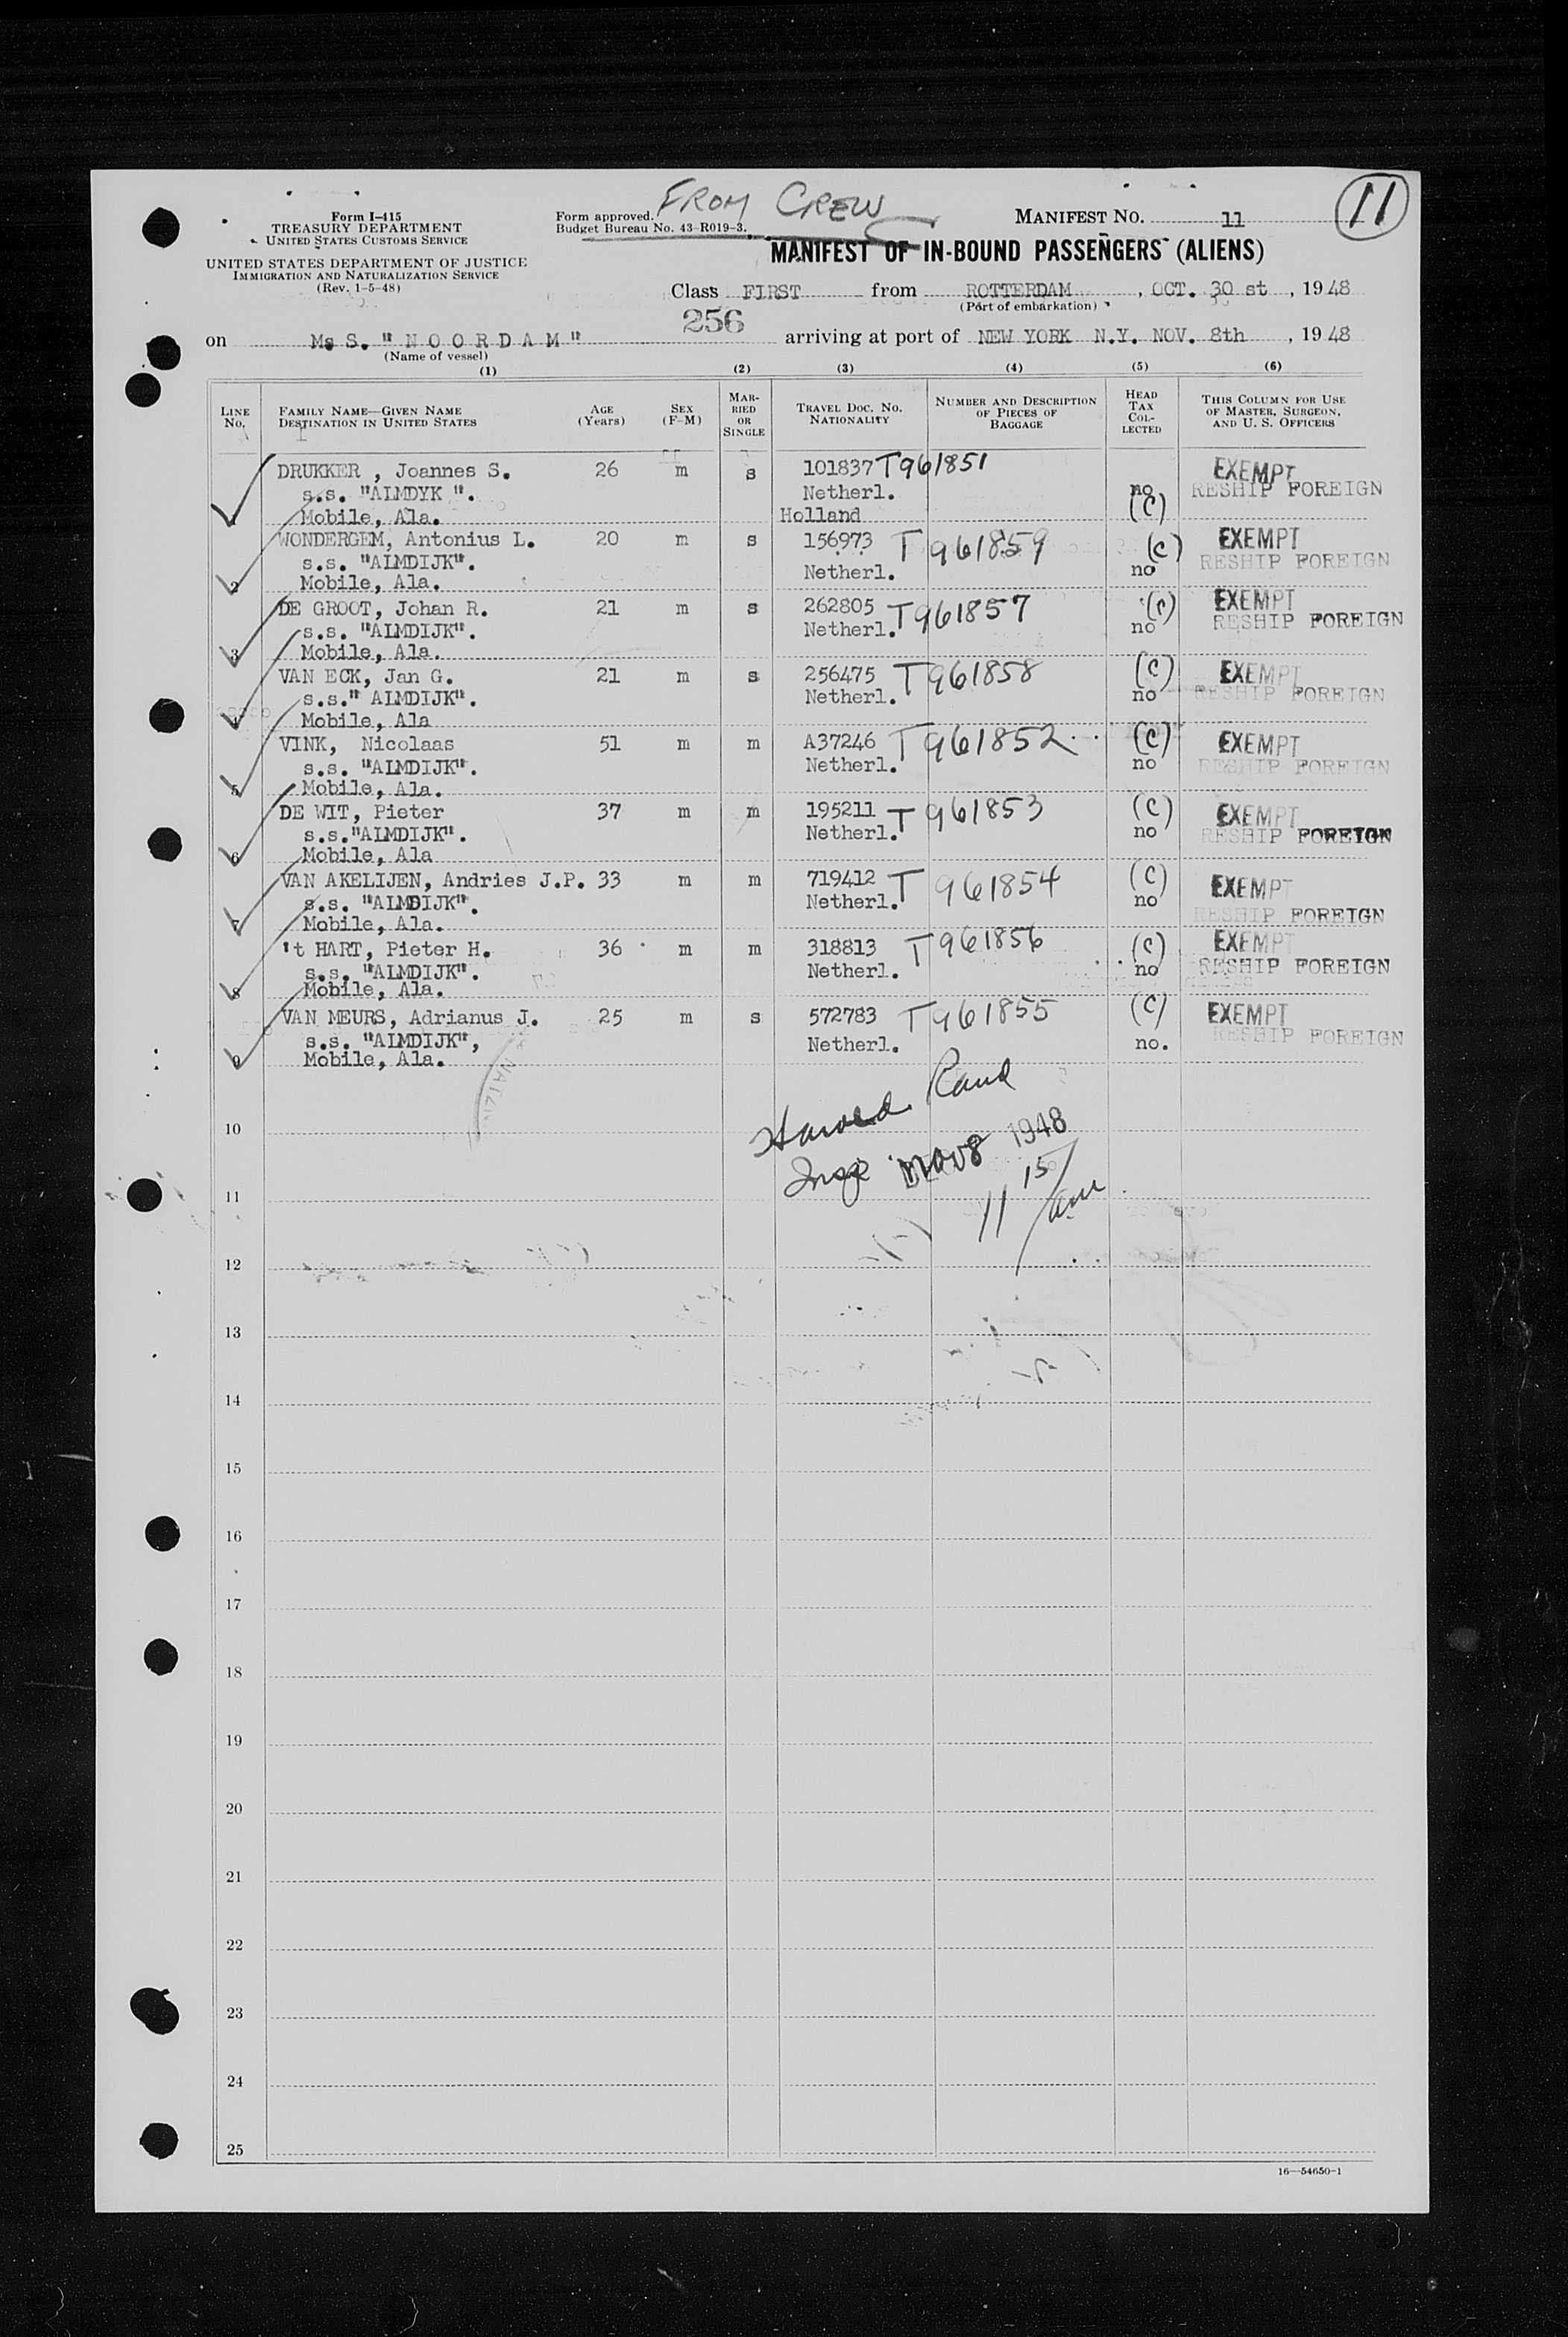 FROM CREW
Form I-415
TREASURY DEPARTMENT
UNITED STATES CUSTOMS SERVICE
UNITED STATES DEPARTMENT OF JUSTICE
IMMIGRATION AND NATURALIZATION SERVICE
(Rev. 1-5-48)
Form approved.
Budget Bureau No. 43-R019-3.
MANIFEST NO. 11
11
MANIFEST OF IN-BOUND PASSENGERS (ALIENS)
Class FIRST from ROTTERDAM, OCT. 30 st, 1948
(Port of embarkation)
256
on Ms S. "NOORDAM" arriving at port of NEW YORK N.Y. NOV. 8th, 1948
(Name of vessel)
(1) (2) (3) (4) (5) (6)
LINE NO.
FAMILY NAME—GIVEN NAME
DESTINATION IN UNITED STATES
AGE (Years)
SEX (F-M)
MARRIED OR SINGLE
TRAVEL DOC. NO.
NATIONALITY
NUMBER AND DESCRIPTION OF PIECES OF BAGGAGE
HEAD TAX COLLECTED
THIS COLUMN FOR USE OF MASTER, SURGEON, AND U. S. OFFICERS
DRUKKER , Joannes S. 26 m s 101837 T961851 EXEMPT
s.s. "ALMDYK ". Netherl. no RESHIP FOREIGN
Mobile, Ala. Holland (C)
WONDERGEM, Antonius L. 20 m s 156973 T961859 (C) EXEMPT
s.s. "ALMDIJK". Netherl. no RESHIP FOREIGN
2 Mobile, Ala.
DE GROOT, Johan R. 21 m s 262805 T961857 (C) EXEMPT
s.s. "ALMDIJK". Netherl. no RESHIP FOREIGN
3 Mobile, Ala.
VAN ECK, Jan G. 21 m s 256475 T961858 (C) EXEMPT
s.s." ALMDIJK". Netherl. no RESHIP FOREIGN
Mobile, Ala
VINK, Nicolaas 51 m m A37246 T961852 (C) EXEMPT
s.s. "ALMDIJK". Netherl. no RESHIP FOREIGN
5 Mobile, Ala.
DE WIT, Pieter 37 m m 195211 T961853 (C) EXEMPT
s.s."ALMDIJK". Netherl. no RESHIP FOREIGN
6 Mobile, Ala
VAN AKELIJEN, Andries J.P. 33 m m 719412 T961854 (C) EXEMPT
s.s. "ALMDIJK". Netherl. no RESHIP FOREIGN
7 Mobile, Ala.
't HART, Pieter H. 36 m m 318813 T961856 (C) EXEMPT
s.s. "ALMDIJK". Netherl. no RESHIP FOREIGN
8 Mobile, Ala.
VAN MEURS, Adrianus J. 25 m s 572783 T961855 (C) EXEMPT
s.s. "ALMDIJK", Netherl. no. RESHIP FOREIGN
9 Mobile, Ala.
Harold Rand
Insp NOV 8 1948
11 15/am
10
11
12
13
14
15
16
17
18
19
20
21
22
23
24
25
16—54650-1